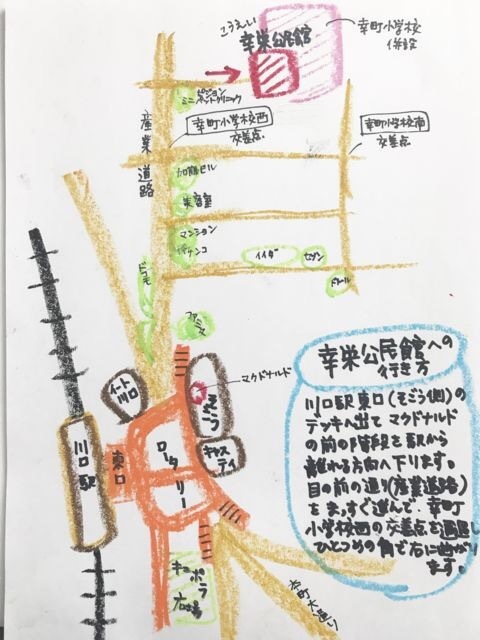 こうえい
幸栄公民館
幸町小学校
併設
ミニペットクリニック
産業道路
幸町小学校西
交差点
幸町小学校南
交差点
加藤ビル
美容室
マンション
パチンコ
イイダ
セブン
ドトール
ファミマ
マクドナルド
イート
川口
そごう
キャスティ
ロータリー
川口駅
東口
キュポラ
広場
本町大通り
幸栄公民館への
行き方
川口駅東口(そごう側)の
デッキへ出て マクドナルド
の前の階段を駅から
離れる方向へ下ります。
目の前の通り(産業道路)
をまっすぐ進んで、幸町
小学校西の交差点を通過し
ひとつめの角で右に曲がり
ます。